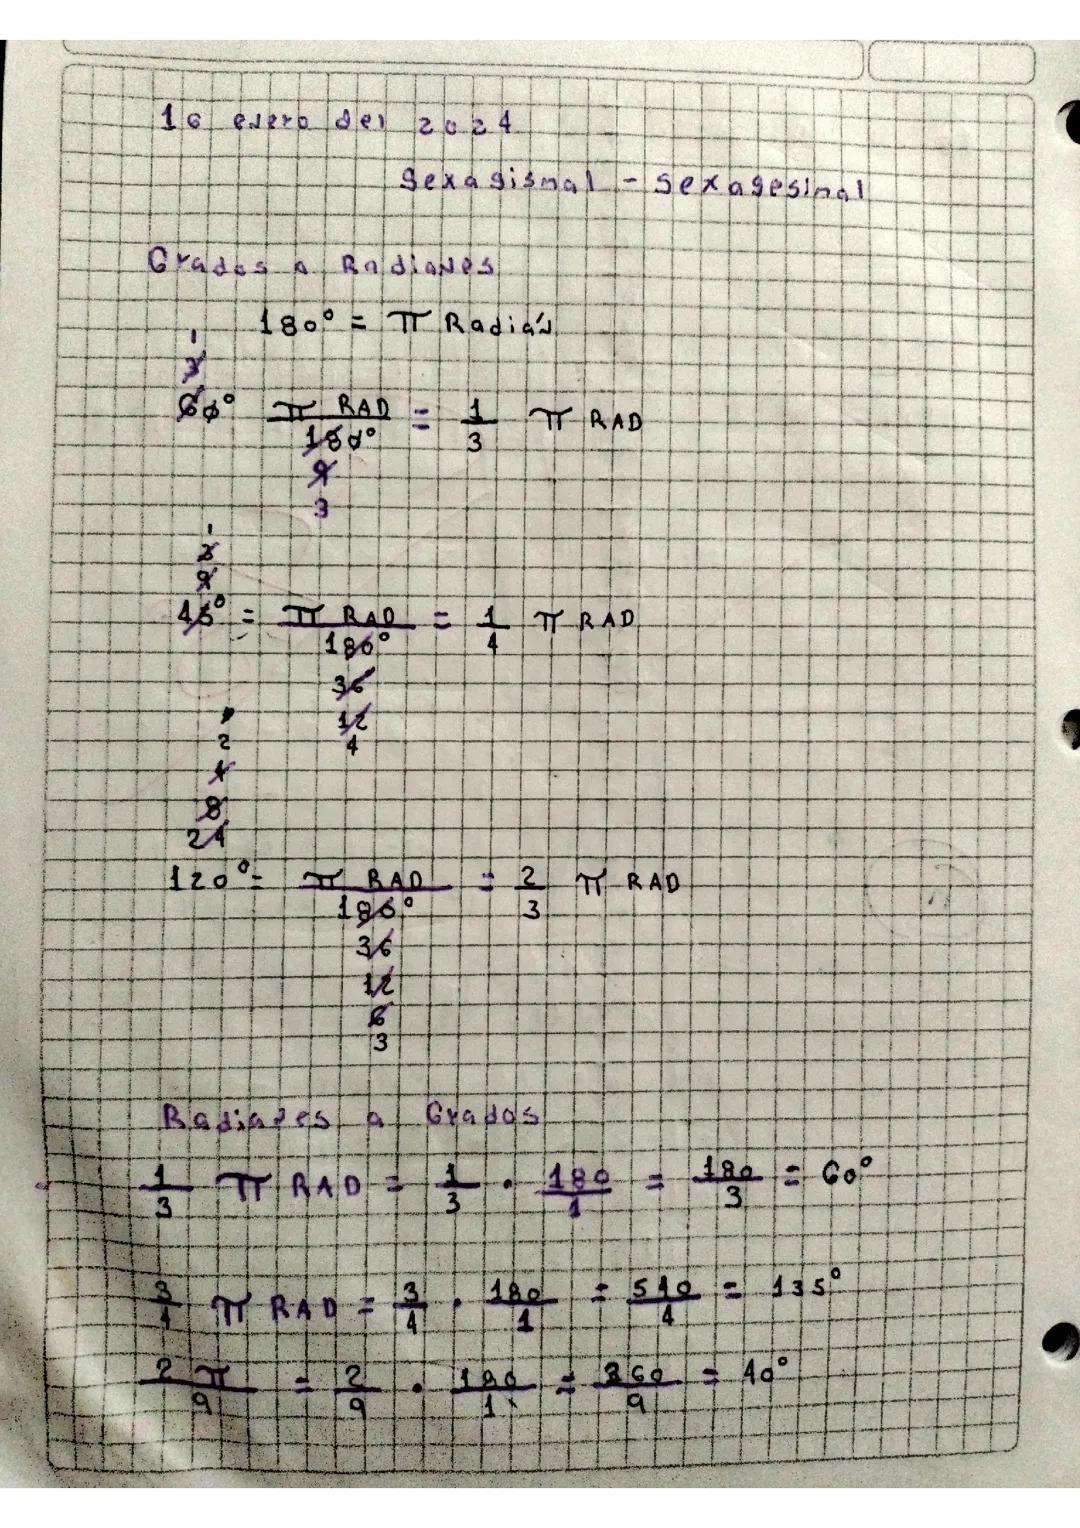 16 enero del 2024
Sexagismal - Sexagesimal
Grados a Radianes
180° = π Radián
1
3
60° π RAD / 180° = 1/3 π RAD
9
3
1
3
9
45° = π RAD / 180° = 1/4 π RAD
36
12
4
2
4
8
24
120° = π RAD / 180° = 2/3 π RAD
36
12
6
3
Radianes a Grados
1/3 π RAD = 1/3 · 180/1 = 180/3 = 60°
3/4 π RAD = 3/4 · 180/1 = 540/4 = 135°
2π/9 = 2/9 · 180/1 = 360/9 = 40°